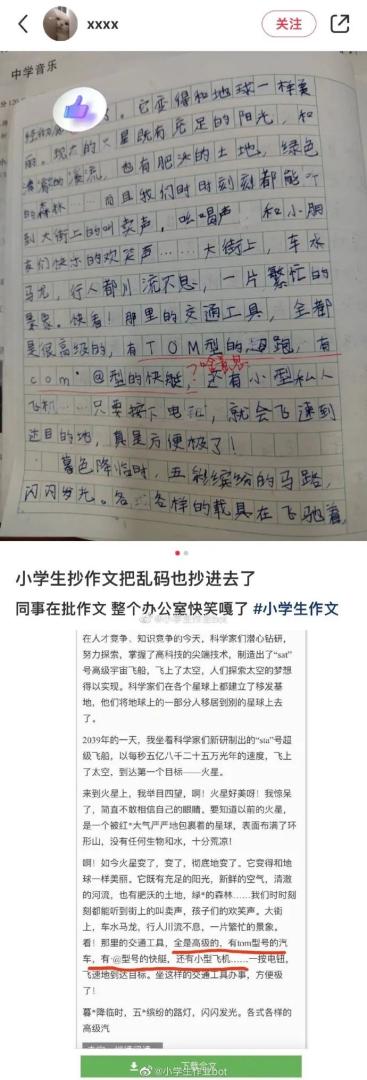 xxxx
关注
中学音乐
。它变得和地球一样美
丽。现在的火星既有充足的阳光，和
清澈的溪流，也有肥沃的土地，绿色
的森林……而且我们时时刻刻都能听
到大街上的叫卖声，吆喝声 和小朋
友们快乐的欢笑声……大街上，车水
马龙，行人都川流不息，一片繁忙的
景象。快看！那里的交通工具，全都
是很高级的，有TOM型的跑，有
com·@型的快艇，还有小型私人
?啥意思
飞机……只要按下电钮，就会飞速到
达目的地，真是方便极了！
暮色降临时，五彩缤纷的马路，
闪闪发光。各式各样的载具在飞驰着
小学生抄作文把乱码也抄进去了
同事在批作文 整个办公室快笑嘎了 #小学生作文
@小学生作业bot
在人才竞争、知识竞争的今天，科学家们潜心钻研，
努力探索，掌握了高科技的尖端技术，制造出了“sat”
号高级宇宙飞船，飞上了太空，人们探索太空的梦想
得以实现。科学家们在各个星球上都建立了移发基
地，他们将地球上的一部分人移居到别的星球上去
了。
2039年的一天，我坐着科学家们新研制出的“sta”号超
级飞船，以每秒五亿八千二十五万光年的速度，飞上
了太空，到达第一个目标——火星。
来到火星上，我举目四望，啊！火星好美呀！我惊呆
了，简直不敢相信自己的眼睛。要知道以前的火星，
是一个被红*大气严严地包裹着的星球，表面布满了环
形山，没有任何生物和水，十分荒凉！
啊！如今火星变了，变了，彻底地变了。它变得和地
球一样美丽。它既有充足的阳光，新鲜的空气，清澈
的河流，也有肥沃的土地，绿*的森林……我们时时刻
刻都能听到街上的叫卖声，孩子们的欢笑声。大街
上，车水马龙，行人川流不息，一片繁忙的景象。
看！那里的交通工具，全是高级的，有tom型号的汽
车，有·@型号的快艇，还有小型飞机……一按电钮，
飞速地到达目标。坐这样的交通工具办事，方便极
了！
暮*降临时，五*缤纷的路灯，闪闪发光。各式各样的
高级汽
下载全文
@小学生作业bot